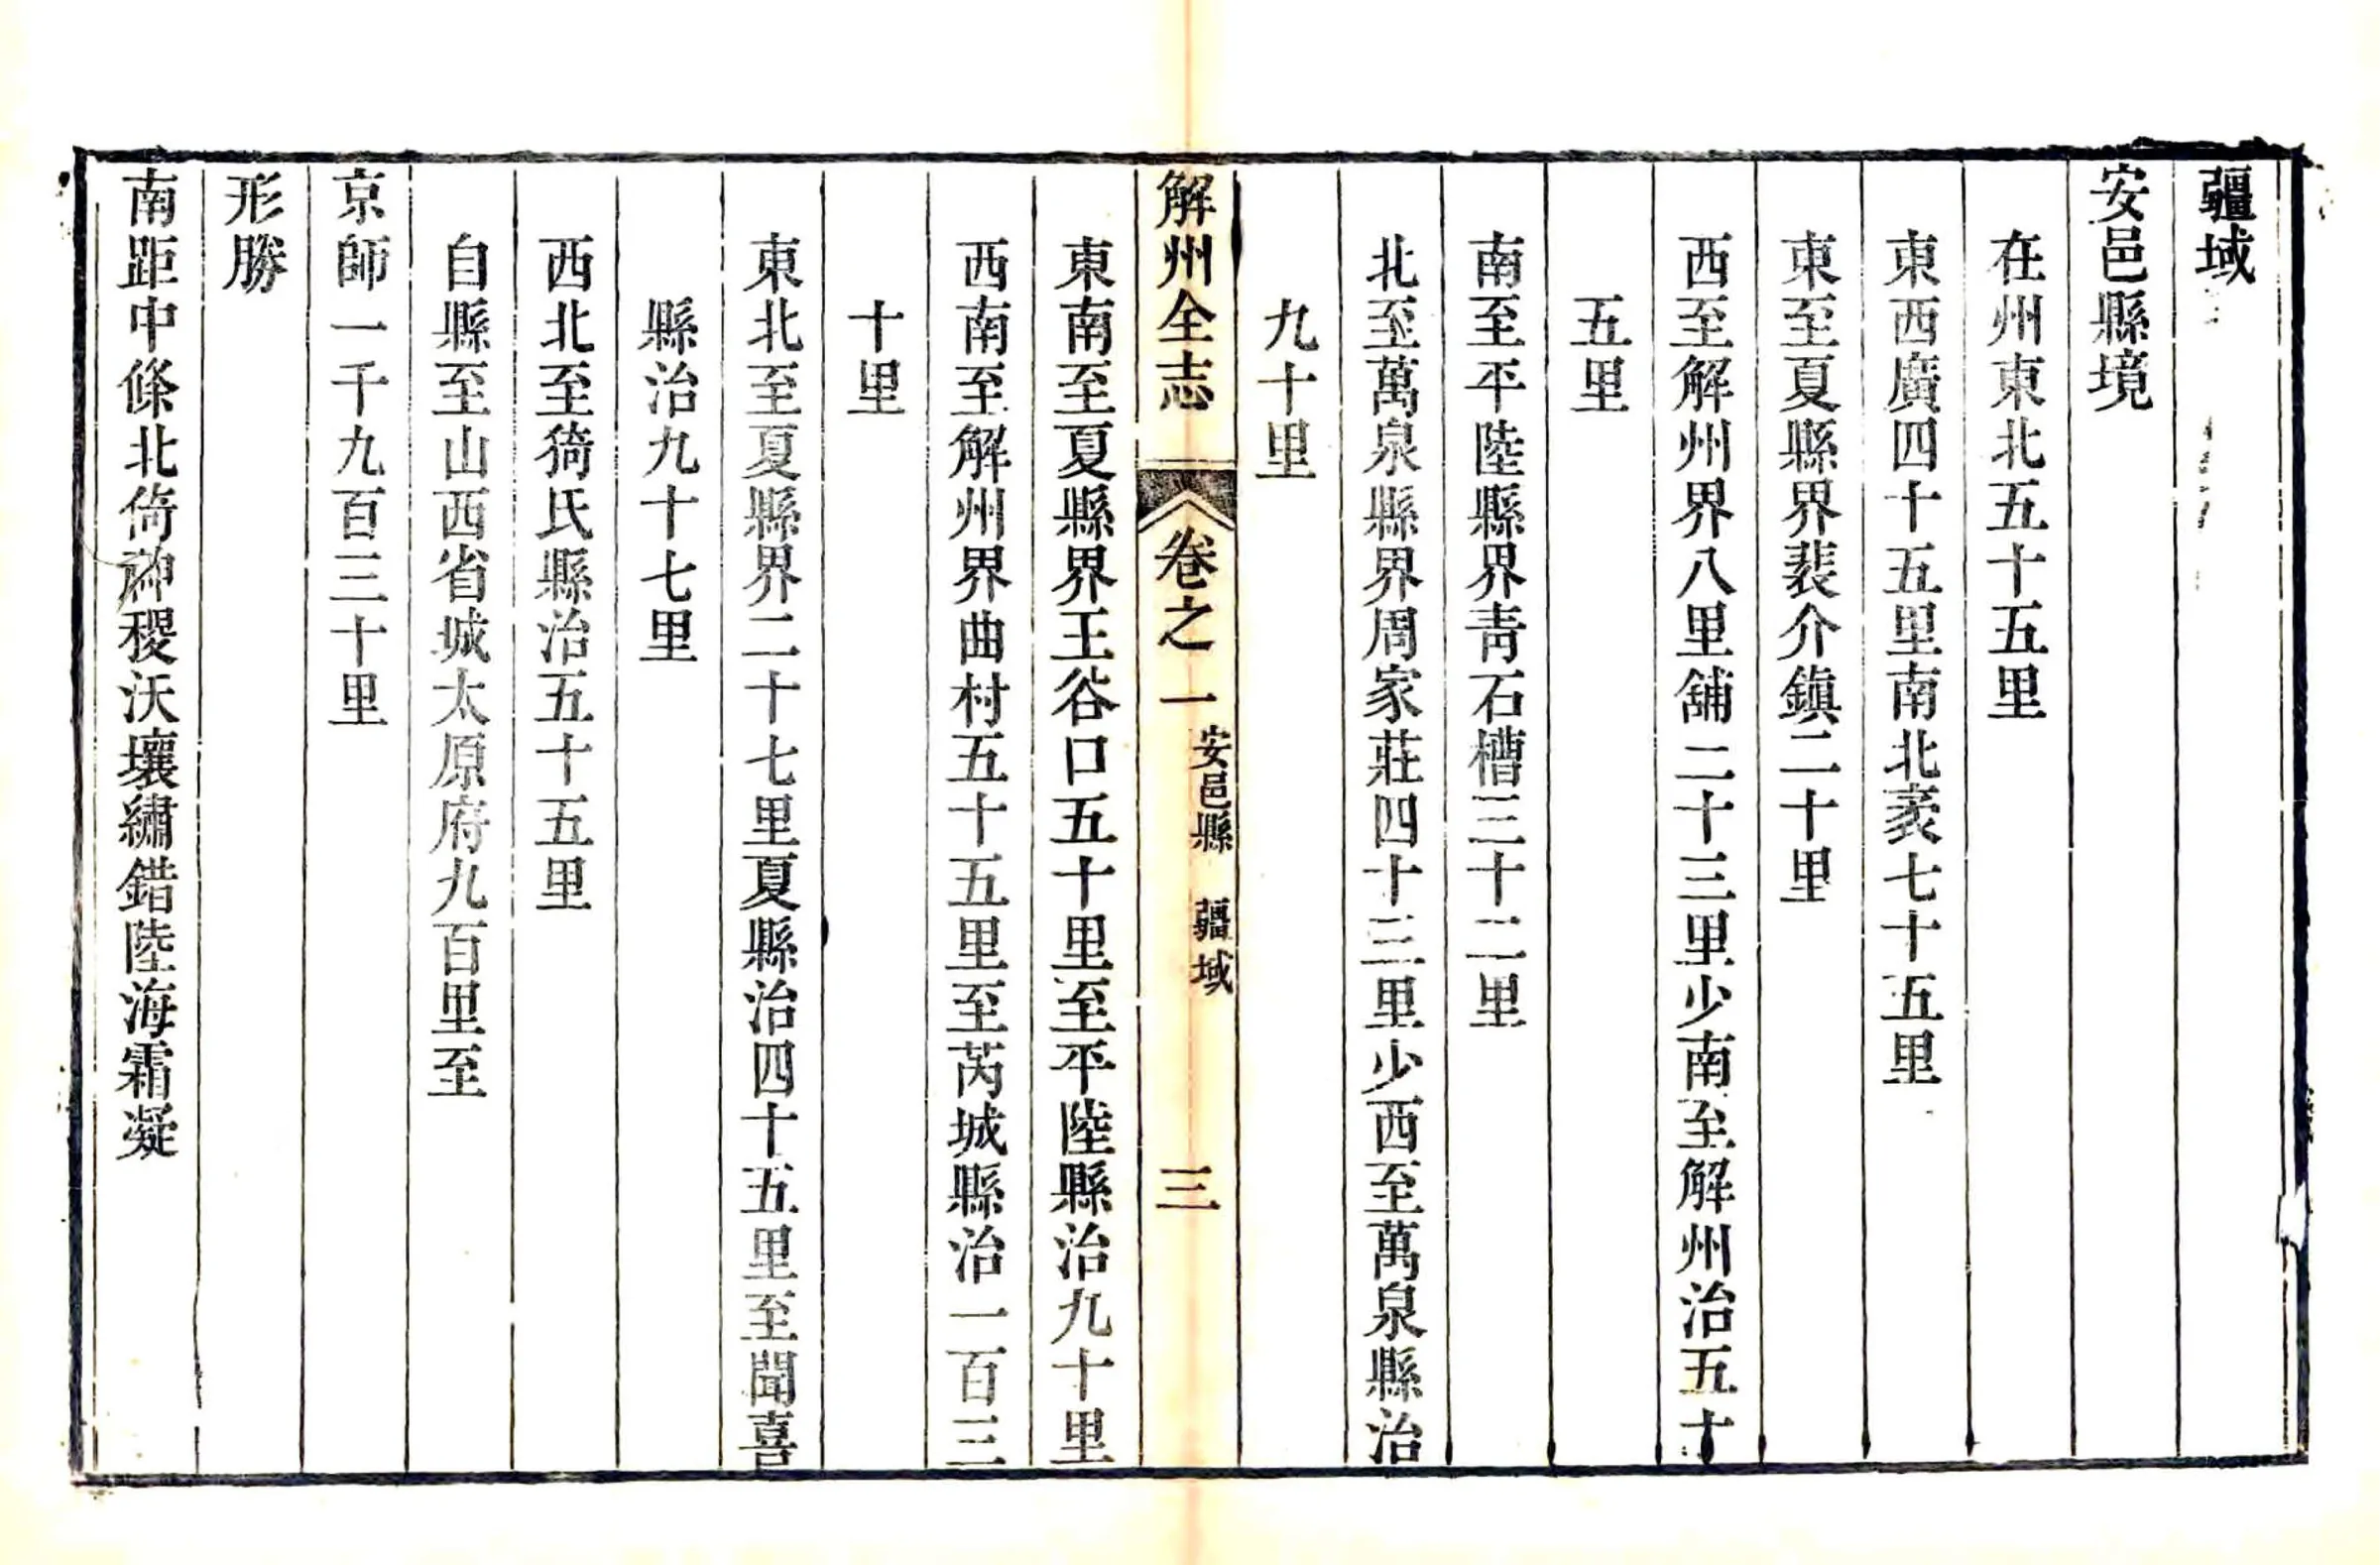 疆域
安邑縣境
在州東北五十五里
東西廣四十五里南北袤七十五里
東至夏縣界裴介鎮二十里
西至解州界八里舖二十三里少南至解州治五十
五里
南至平陸縣界靑石槽三十二里
北至萬泉縣界周家莊四十三里少西至萬泉縣治
九十里
解州全志 卷之一 安邑縣 疆域 三
東南至夏縣界王谷口五十里至平陸縣治九十里
西南至解州界曲村五十五里至芮城縣治一百三
十里
東北至夏縣界二十七里夏縣治四十五里至聞喜
縣治九十七里
西北至猗氏縣治五十五里
自縣至山西省城太原府九百里至
京師一千九百三十里
形勝
南距中條北倚神稷沃壤繡錯陸海霜凝